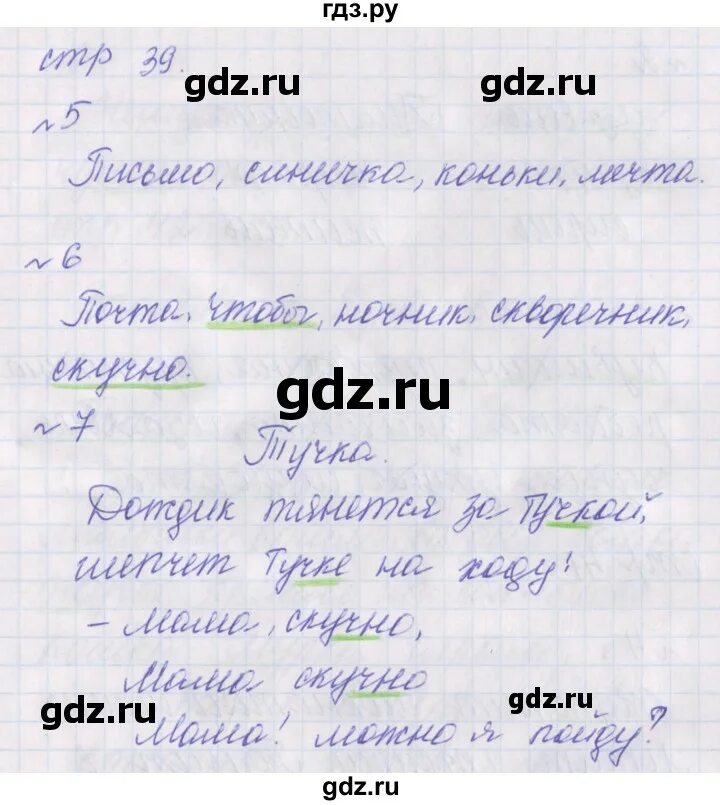 гдз.ру
стр 39.
gdz.ru gdz.ru
№5
Письмо, синичка, коньки, мечта.
№6
Почта, чтобы, ночник, скворечник,
скучно.
gdz.ru
№7
Тучка.
Дождик тянется за Тучкой,
шепчет Тучке на ходу!
- Мама, скучно,
Мама скучно
gdz.ru gdz.ru
Мама! можно я пойду?
gdz.ru